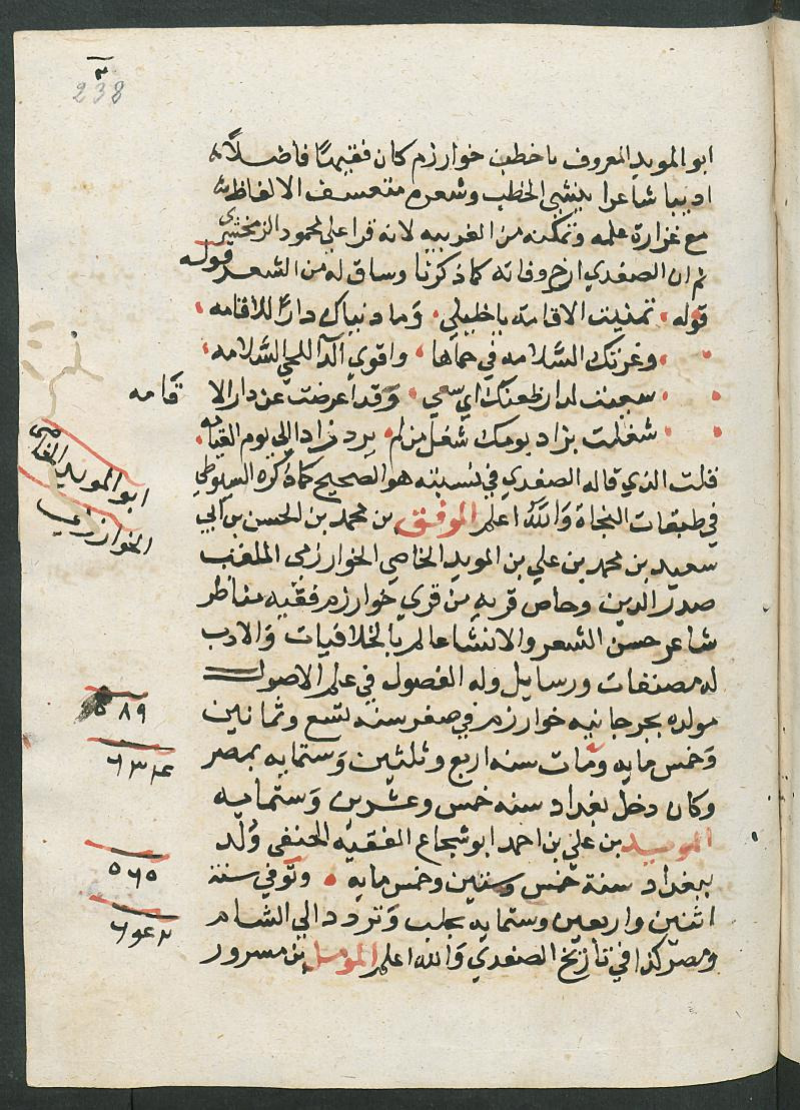 ٣
238
ابو المويد المعروف باخطب خوارزم كان فقيهًا فاضلًا
اديبا شاعرا ينشي الخطب وشعره متعسف الالفاظ
مع غزارة علمه وتمكنه من العربيه لانه قرا علي محمود الزمخشري
ثم ان الصفدي ارخ وفاته كما ذكرنا وساق له من الشعر قوله
قوله تمنيت الاقامة يا خليلي وما دنياك دارًا للاقامه
وغرتك السلامه في حماها واقوي الدا للحي السلامه
سعي وقد اعرضت عن دار الا
قامه
شغلت بزاد يومك شغل من لم يرد زادا الي يوم القيامه
قلت الذي قاله الصفدي في نسبته هو الصحيح كما ذكره السيوطي
في طبقات النحاة والله اعلم الموفق بن محمد بن الحسن بن ابي
ابو المويد الخاصي
الخوارزمي
سعيد بن محمد بن علي بن المويد الخاصي الخوارزمي الملقب
صدر الدين وخاص قريه من قري خوارزم فقيه مناظر
شاعر حسن الشعر والانشا عالم بالخلافيات والادب
له مصنفات ورسايل وله الفصول في علم الاصول
مولده بجرجانيه خوارزم في صفر سنه تسع وثمانين
٥٨٩
وخمس مايه ومات سنه اربع وثلثين وستمايه بمصر
٦٣٤
وكان دخل بغداد سنه خمس وعشرين وستمايه
المويد بن علي بن احمد ابو شجاع الفقيه الحنفي ولد
ببغداد سنة خمس وستين وخمس مايه وتوفي سنة
٥٦٥
اثنين واربعين وستمايه بحلب وتردد الي الشام
٦٤٢
ومصر كذا في تاريخ الصفدي والله اعلم المومل بن مسرور